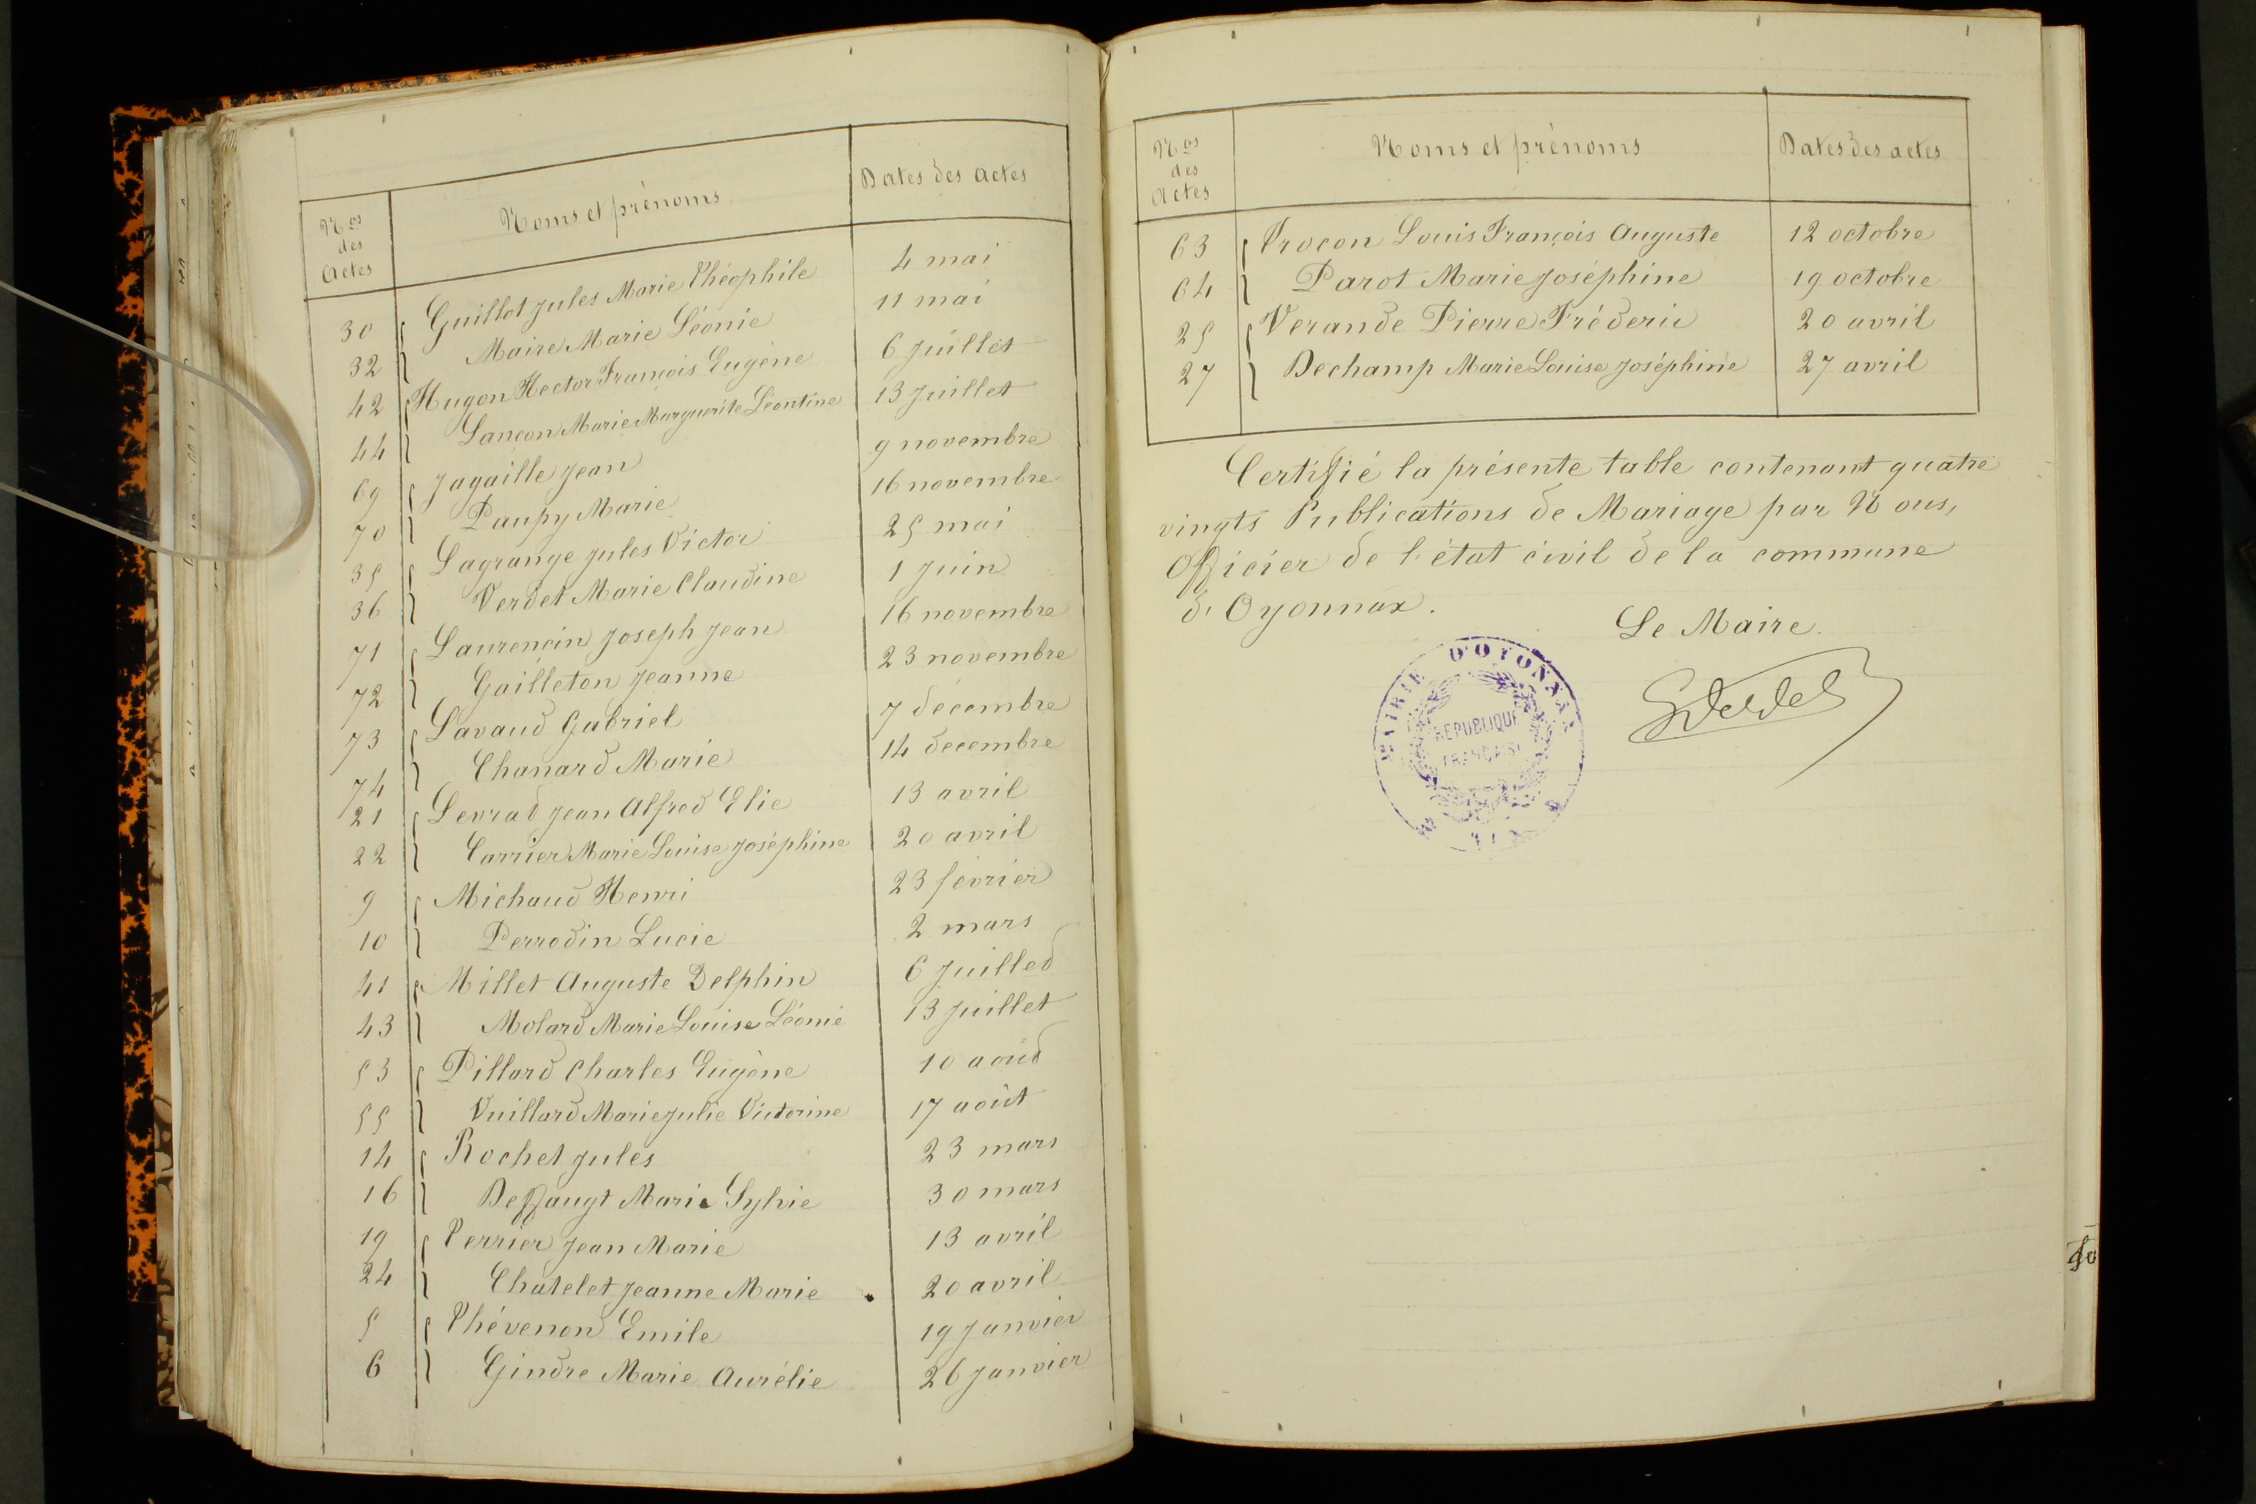 Nos des Actes | Noms et prénoms | Dates des actes
30 Guillot Jules Marie Théophile 4 mai
32 Maire Marie Léonie 11 mai
42 Hugon Hector François Eugène 6 Juillet
44 Lançon Marie Marguerite Léontine 13 Juillet
69 Jagaille Jean 9 novembre
70 Paupy Marie 16 novembre
35 Lagrange Jules Victor 25 mai
36 Verdet Marie Claudine 1 Juin
71 Laurencin Joseph Jean 16 novembre
72 Gailleton Jeanne 23 novembre
73 Lavaud Gabriel 7 décembre
74 Chanard Marie 14 decembre
21 Levrat Jean Alfred Elie 13 avril
22 Carrier Marie Louise Joséphine 20 avril
9 Michaud Henri 23 février
10 Perrodin Lucie 2 mars
41 Millet Auguste Delphin 6 Juillet
43 Molard Marie Louise Léonie 13 Juillet
53 Pillard Charles Eugène 10 août
55 Vuillard Marie Julie Victorine 17 août
14 Rochet Jules 23 mars
16 Deffaugt Marie Sylvie 30 mars
19 Terrier Jean Marie 13 avril
24 Chatelet Jeanne Marie 20 avril
5 Thévenon Emile 19 Janvier
6 Gindre Marie Aurélie 26 Janvier
Nos des Actes | Noms et prénoms | Dates des actes
63 Trocon Louis François Auguste 12 octobre
64 Parot Marie Joséphine 19 octobre
25 Verande Pierre Fréderic 20 avril
27 Dechamp Marie Louise Joséphine 27 avril
Certifié la présente table contenant quatre
vingts Publications de Mariage par Nous,
Officier de l'état civil de la commune
d'Oyonnax.
Le Maire
MAIRIE D'OYONNAX
RÉPUBLIQUE
FRANÇAISE
AIN